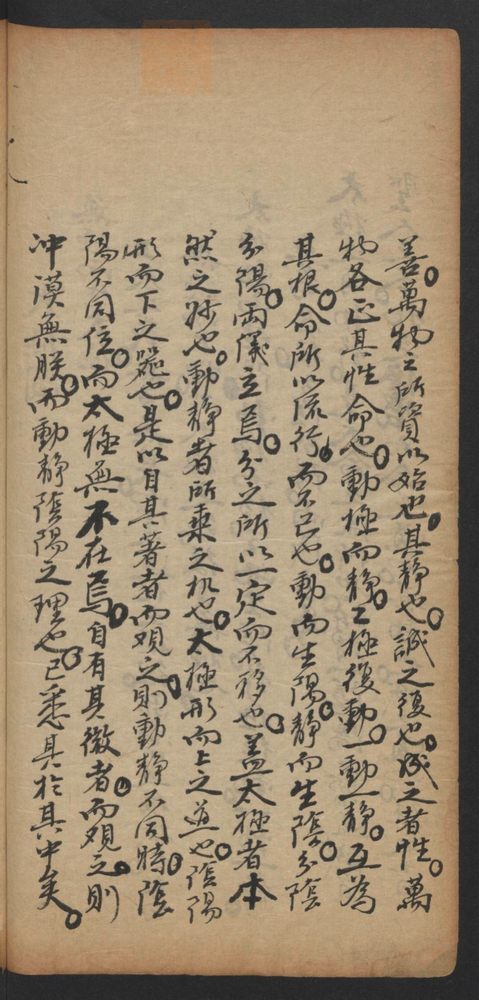 善。萬物之所資以始也。其靜也。誠之復也。成之者性。萬
物各正其性命也。動極而靜。靜極復動。一動一靜。互為
其根。命所以流行。而不已也。動而生陽。靜而生陰。分陰
分陽。兩儀立焉。分之所以一定而不移也。盖太極者本
然之妙也。動靜者所乘之机也。太極形而上之道也。陰陽
形而下之器也。是以自其著者而观之。則動靜不同時。陰
陽不同位。而太極無不在焉。自有其微者。而观之。則
冲漠無朕。而動靜陰陽之理也。已悉具於其中矣。